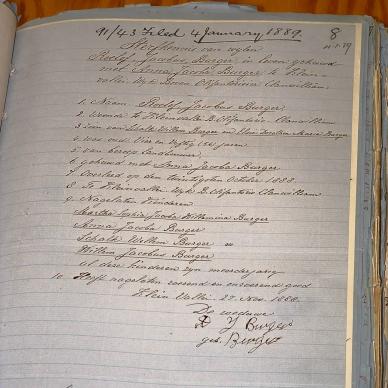 91/43 Filed 4 January 1889. 8
Sterfkennis van wylen
Roelof Jacobus Burger in leven gehuwd
met Anna Jacoba Burger te Klein
vallei Wyk Boven Olifantsrivier Clanwilliam
1. Naam Roelof Jacobus Burger
2. Woonde te Kleinvallei B. Olifantsriv. Clanwilliam
3. Zoon van Schalk Willem Burger en Maria Burger
4. was oud Vier en Vyftig jaren
5. van beroep Landbouwer
6. gehuwd met Anna Jacoba Burger
7. Overleed op den twintigsten October 1888.
8. Te Kleinvallei Wyk B. Olifantsriv Clanwilliam
9. Nagelaten Kinderen
Martha Sophia Jacoba Willemina Burger
Anna Jacoba Burger
Schalk Willem Burger en
Willem Jacobus Burger
al deze kinderen zyn meerderjarig
10. Heeft nagelaten roerend en onroerend goed
Klein Vallei 27. Nov. 1888.
De weduwe
J Burger
geb. Burger